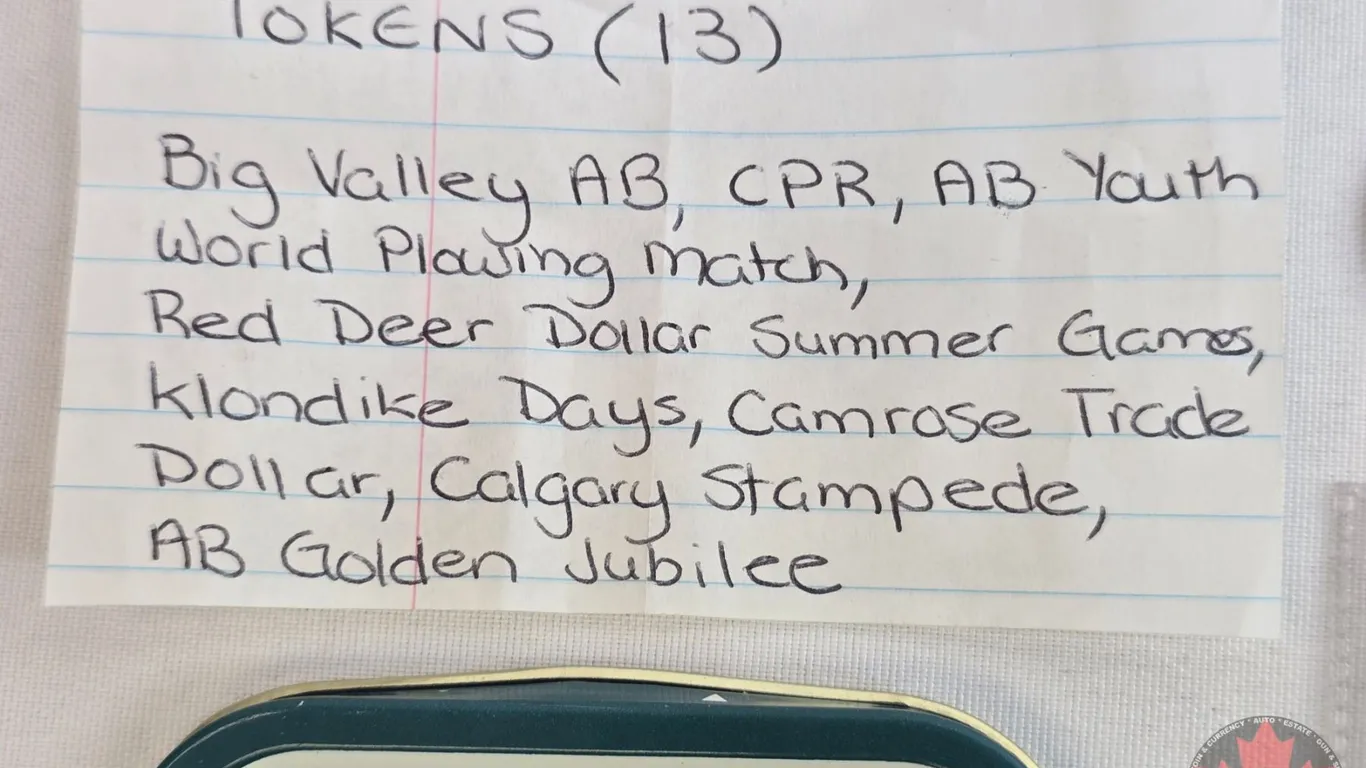 TOKENS (13)
Big Valley AB, CPR, AB Youth
World Plowing Match,
Red Deer Dollar Summer Games,
Klondike Days, Camrose Trade
Dollar, Calgary Stampede,
AB Golden Jubilee
& CURRENCY * AUTO * ESTATE * GUN &